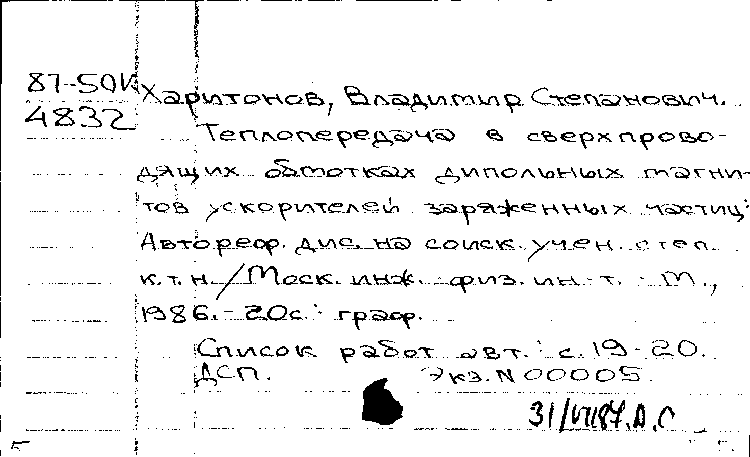 87-50И
4832
Харитонов, Владимир Степанович.
Теплопередача в сверхпрово-
дящих обмотках дипольных магни-
тов ускорителей заряженных частиц:
Автореф. дис. на соиск. учен. степ.
к.т.н. / Моск. инж. -физ. ин-т. - М.,
1986. - 20с.: граф.
Список работ авт.: с. 19-20.
ДСП. Экз. N 00005.
31/VII87. Д.С